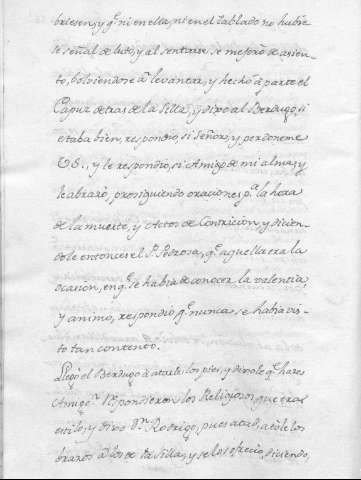 briesen, y q.e ni en ella, ni en el tablado no hubie
se señal de luto, y al sentarse, se mejoró de asien-
to, bolviendose à levantar, y hechó à parte el
Capuz detras de la Silla, y dixo al Berdugo, si
estaba bien, respondio, si Señor, y perdoneme
VS., y le respondio, si Amigo de mi alma, y
le abrazó, prosiguiendo oraciones p.a la hora
de la muerte, y Actos de Contricion, y dicien-
dole entonces el P. Pedrosa, q.e aquella era la
ocasion, en q.e se habia de conocer la valentia,
y animo, respondio q.e nunca se habia vis-
to tan contento.
Llegó el Berdugo à atarle los pies, y dixole q.e haces
Amigo? Respondieron los Religiosos, que era
estilo, y dixo D.n Rodrigo, pues atad, atóle los
brazos à los de la Silla, y se los ofrecio, diciendo,